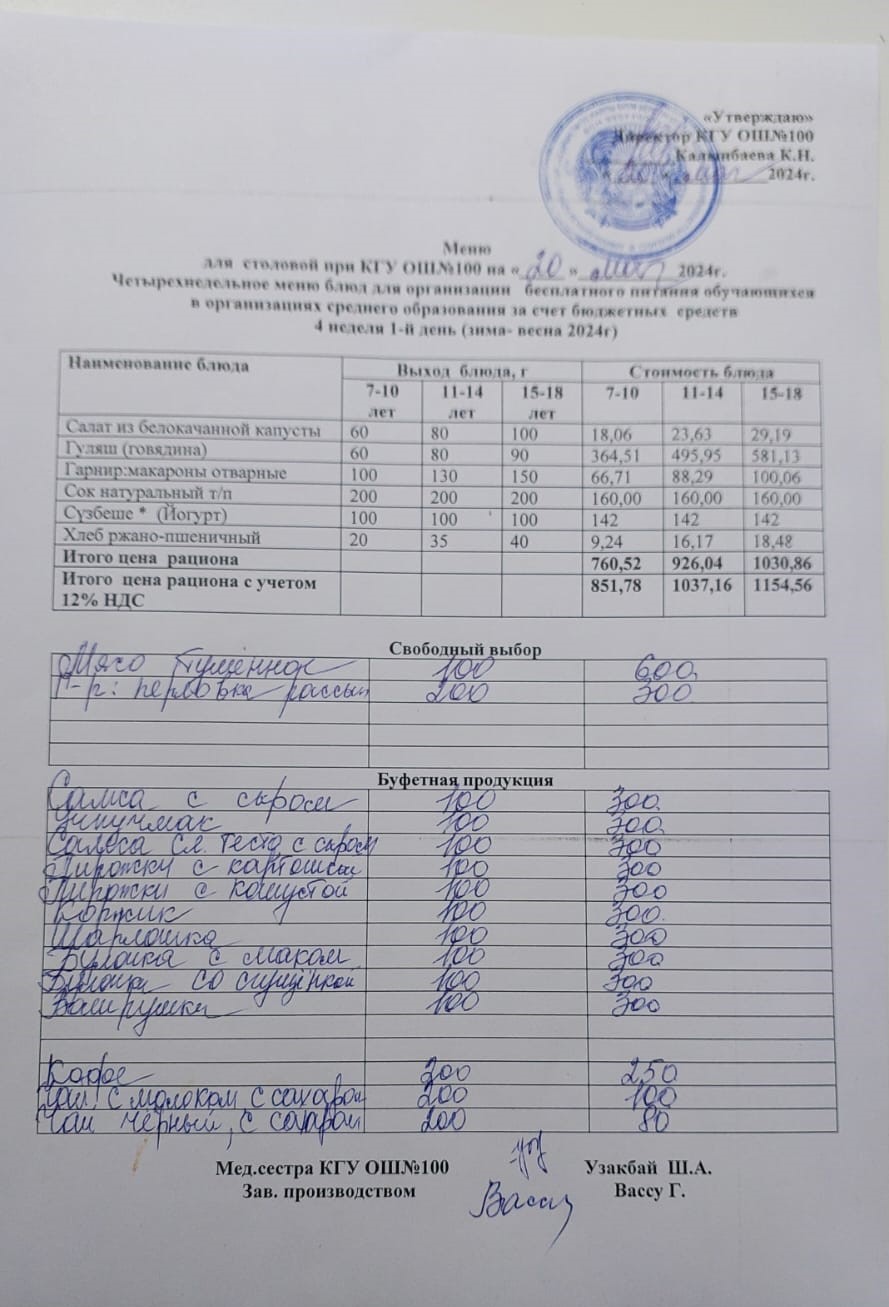 «Утверждаю»
Директор КГУ ОШ№100
Калынбаева К.Н.
« 20 » март 2024г.
Меню
для столовой при КГУ ОШ№100 на « 20 « март 2024г.
Четырехнедельное меню блюд для организации бесплатного питания обучающихся
в организациях среднего образования за счет бюджетных средств
4 неделя 1-й день (зима- весна 2024г)
Наименование блюда Выход блюда, г Стоимость блюда
7-10 лет 11-14 лет 15-18 лет 7-10 11-14 15-18
Салат из белокачанной капусты 60 80 100 18,06 23,63 29,19
Гуляш (говядина) 60 80 90 364,51 495,95 581,13
Гарнир:макароны отварные 100 130 150 66,71 88,29 100,06
Сок натуральный т/п 200 200 200 160,00 160,00 160,00
Сузбеше * (Йогурт) 100 100 100 142 142 142
Хлеб ржано-пшеничный 20 35 40 9,24 16,17 18,48
Итого цена рациона 760,52 926,04 1030,86
Итого цена рациона с учетом 851,78 1037,16 1154,56
12% НДС
Свободный выбор
Мясо тушённое 100 600
Г-р: перловка рассып 200 300
Буфетная продукция
Самса с сыром 100 300
Учпучмак 100 300
Самса сл. тесто с сыром 100 300
Пирожки с картошкой 100 300
Пирожки с капустой 100 300
Коржик 100 300
Шарлотка 100 300
Булочка с маком 100 300
Булочка со сгущёнкой 100 300
Ватрушки 100 300
Кофе 200 250
Чай с молоком с сахаром 200 100
Чай чёрный, с сахаром 200 80
Мед.сестра КГУ ОШ№100 Узакбай Ш.А.
Зав. производством Вассу Вассу Г.